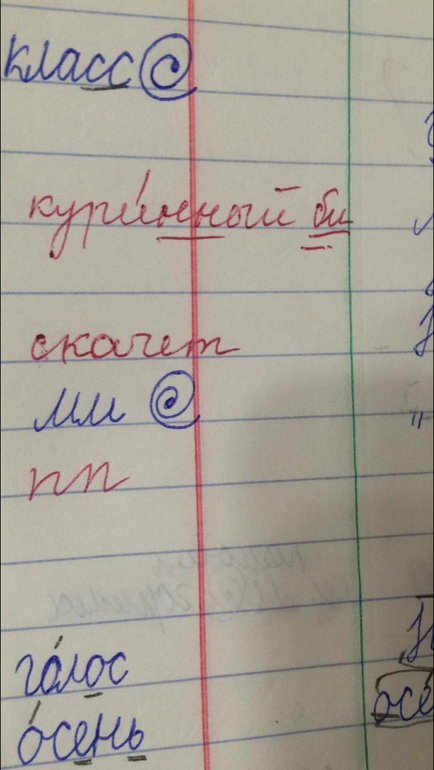 класс
кури́нный би
скачет
мм
пп
го́лос
о́сень
осе